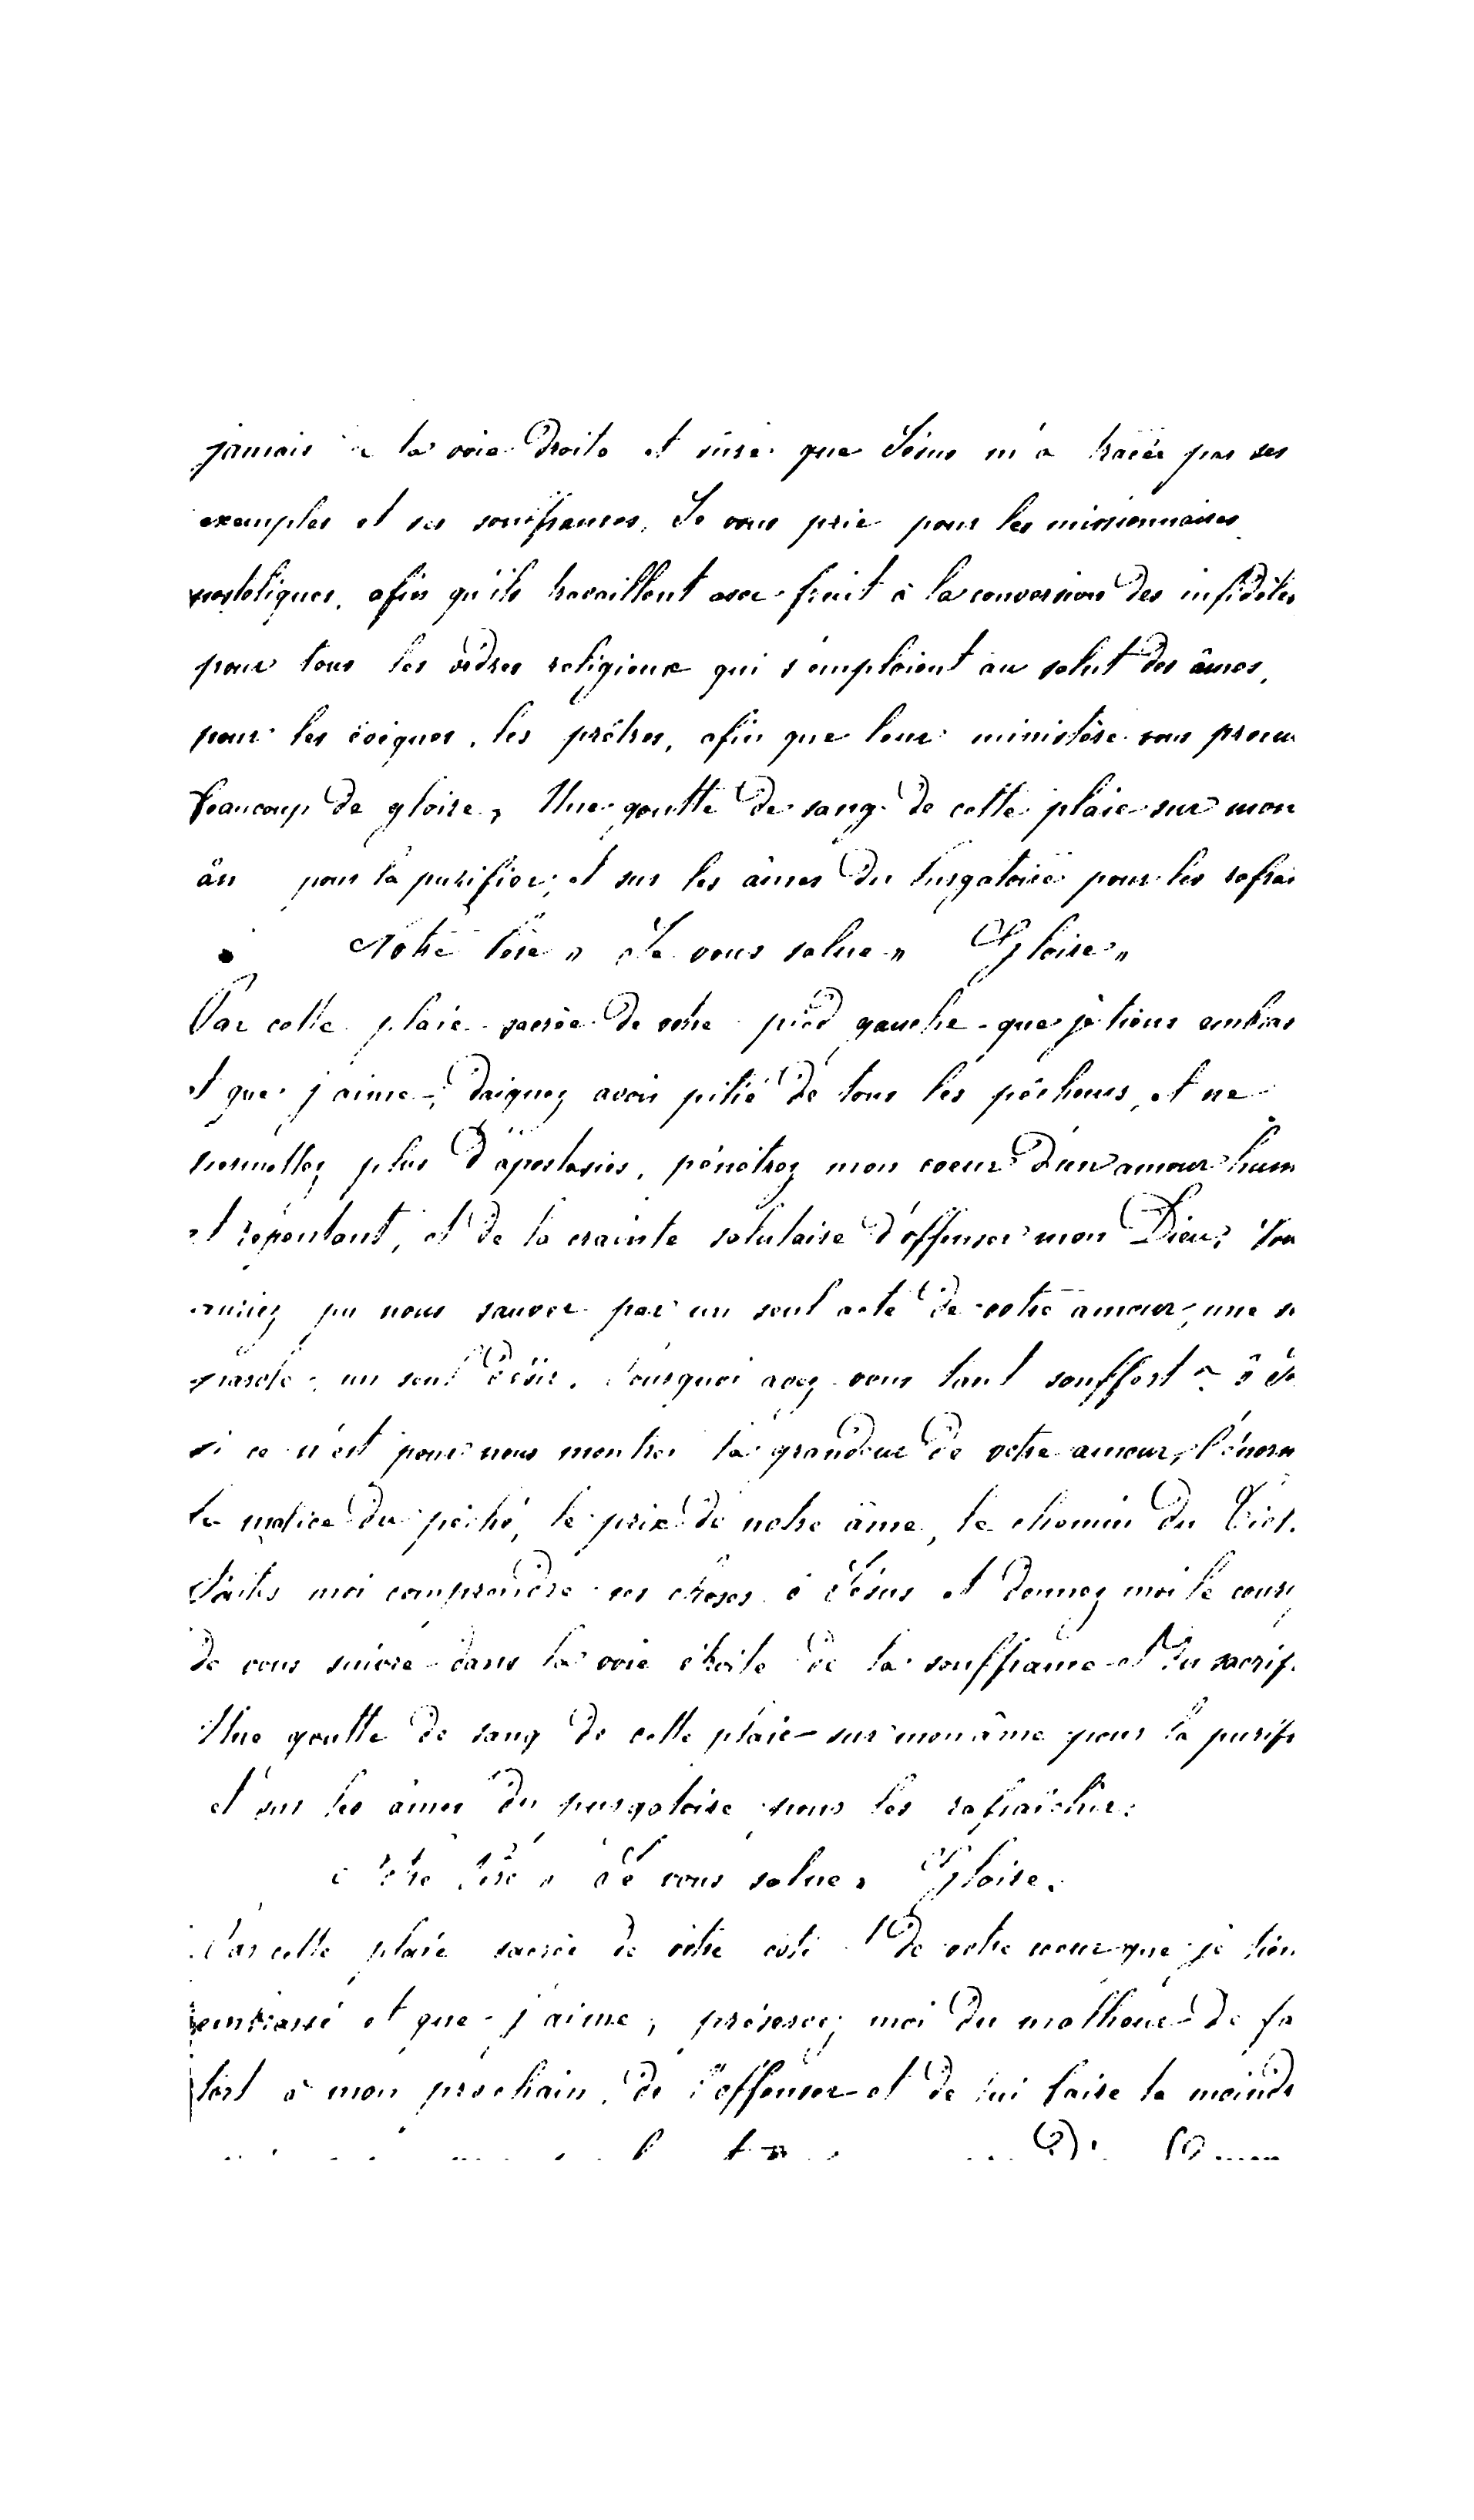 jamais la voie droite et sûre que Jésus m'a tracée par ses
exemples et ses souffrances. Je vous prie pour les missionnaires
apostoliques, afin qu'ils travaillent avec fruit à la conversion des infidèles
pour tous les ordres religieux qui s'emploient au salut des âmes,
pour les évêques, les prêtres, afin que leur ministère vous procu
beaucoup de gloire, Une goutte de sang de cette plaie sur mon
âm pour la purifier, et sur les âmes du Purgatoire pour les rafraî
Notre Père " Je vous salue " Gloire "
Par cette plaie sacrée de votre pied gauche que je tiens embras
et que j'aime, daignez avoir pitié de tous les pécheurs, et ne
permettez plus d'apostasies, pénétrez mon coeur d'un amour hum
et repentant, et de la crainte salutaire d'offenser mon Dieu, Vou
auriez pu nous sauver par un seul acte de votre amour, une s
parole, un seul désir. Pourquoi avez vous tant souffert ô Jé
si ce n'est pour nous montrer la grandeur de votre amour, l'énorm
la malice du péché, le prix de notre âme, le chemin du Ciel.
Faites moi comprendre ces choses ô Jésus et donnez moi le cour
de vous suivre dans la voie étroite de la souffrance et du sacrif
Une goutte de sang de cette plaie sur mon âme pour la purifi
et sur les âmes du purgatoire pour les rafraîchir.
Notre Père " Je vous salue " Gloire.
Par cette plaie sacrée de votre côté et de votre coeur que je tien
embrassé et que j'aime, préservez moi du malheur de fa
tort à mon prochain, de l'offenser et de lui faire la moindr